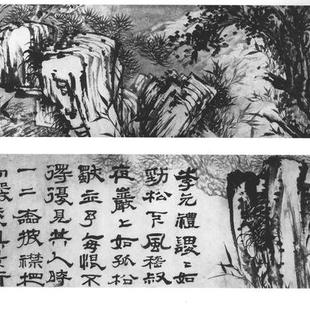 李元禮謖謖如
勁松下風嵇叔
夜巖巖如孤松
立予每恨不
得復見其人時
一二披襟把